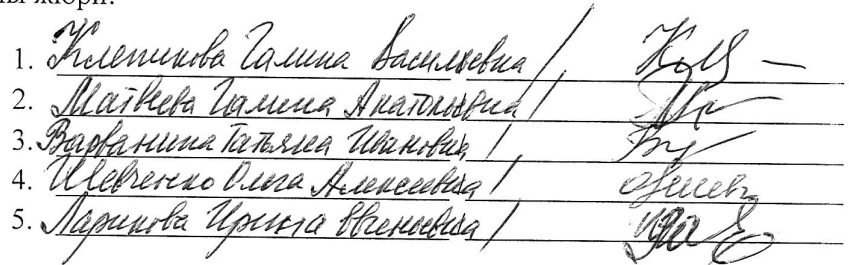 жюри:
1. Клепикова Галина Васильевна /
2. Матвеева Галина Анатольевна /
3. Варванина Татьяна Ивановна /
4. Шевченко Ольга Алексеевна /
5. Ларикова Ирина Евгеньевна /